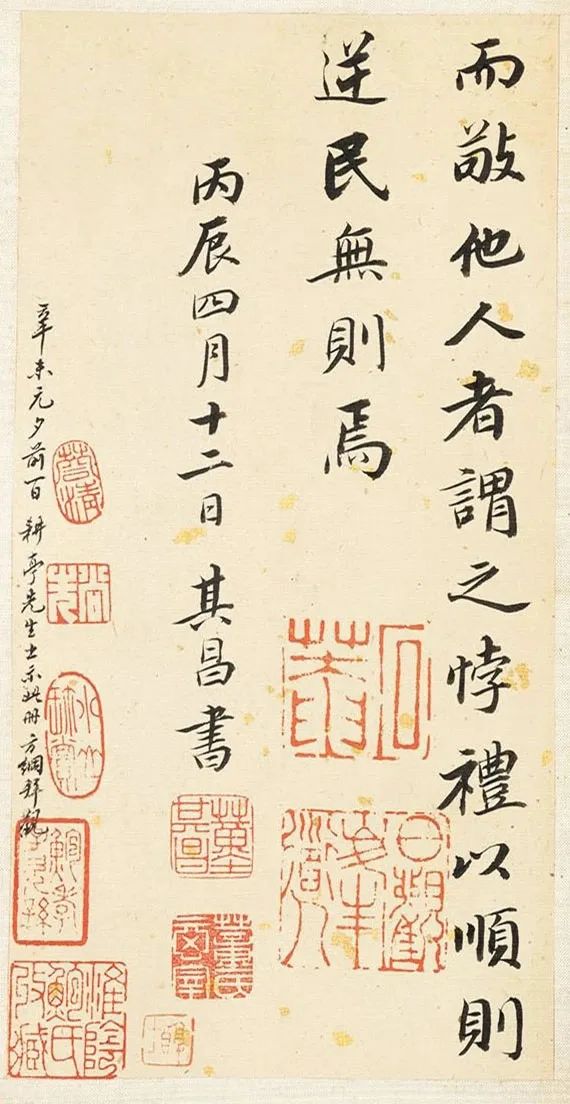 而敬他人者謂之悖禮以順則
逆民無則焉
丙辰四月十二日其昌書
辛未元夕前一日耕亭先生出示此冊方綱拜觀
石菴
董其昌